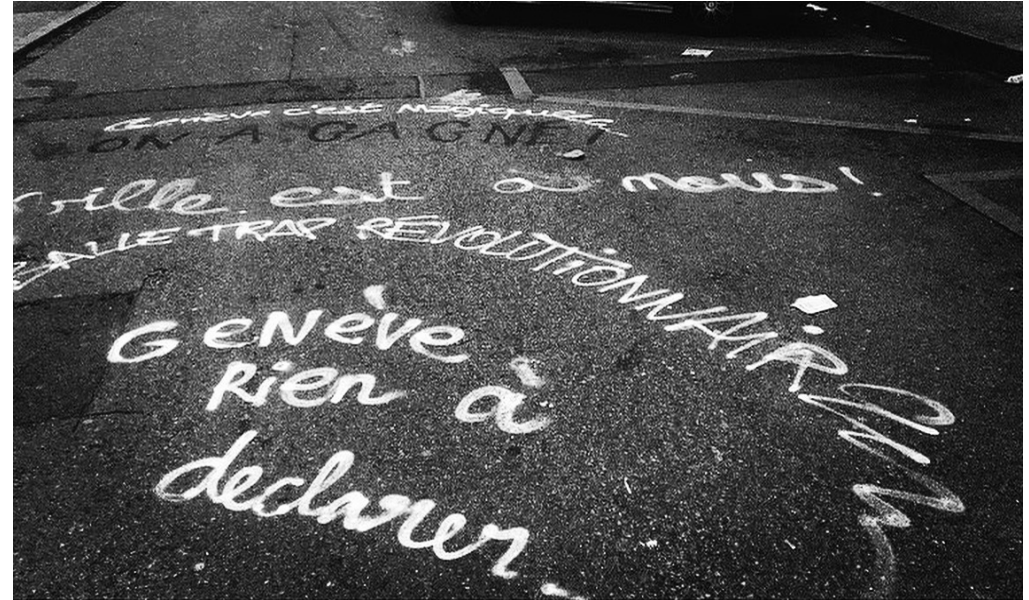 Genève c'est magique
ON A GAGNÉ!
ville est à nous!
BALLETRAP RÉVOLUTIONNAIRE
GeNève
Rien à
declarer.